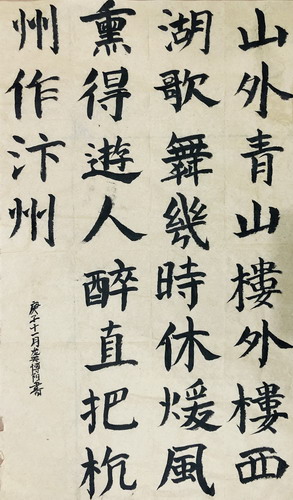 山外青山樓外樓西
湖歌舞幾時休煖風
熏得遊人醉直把杭
州作汴州
庚子十一月 書